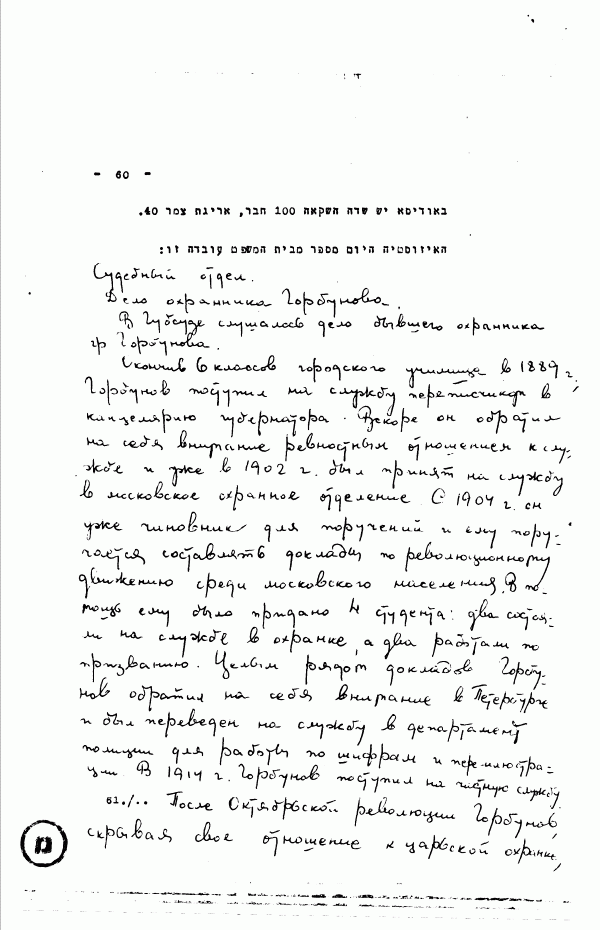 - 60 -
באודיסא יש שדה השקאה 100 חבר, אריגת צמר 40.
האיזוסטיה היום מספר מבית המשפט עובדה זו:
Судебный отдел.
Дело охранника Горбунова.
В Губсуде слушалось дело бывшего охранника
гр Горбунова.
Окончив 6 классов городского училища в 1889 г.,
Горбунов поступил на службу переписчиком в
канцелярию губернатора. Вскоре он обратил
на себя внимание ревностным отношением к слу-
жбе и уже в 1902 г. был принят на службу
в московское охранное отделение. С 1904 г. он
уже чиновник для поручений и ему пору-
чается составлять доклады по революционному
движению среди московского населения. В по-
мощь ему было придано 4 студента: два состоя-
ли на службе в охранке, а два работали по
призванию. Целым рядом докладов Горбу-
нов обратил на себя внимание в Петербурге
и был переведен на службу в департамент
полиции для работы по шифрам и перлюстра-
ции. В 1914 г. Горбунов поступил на частную службу
61./.. После Октябрьской революции Горбунов,
скрывая свое отношение к царской охранке,
מ